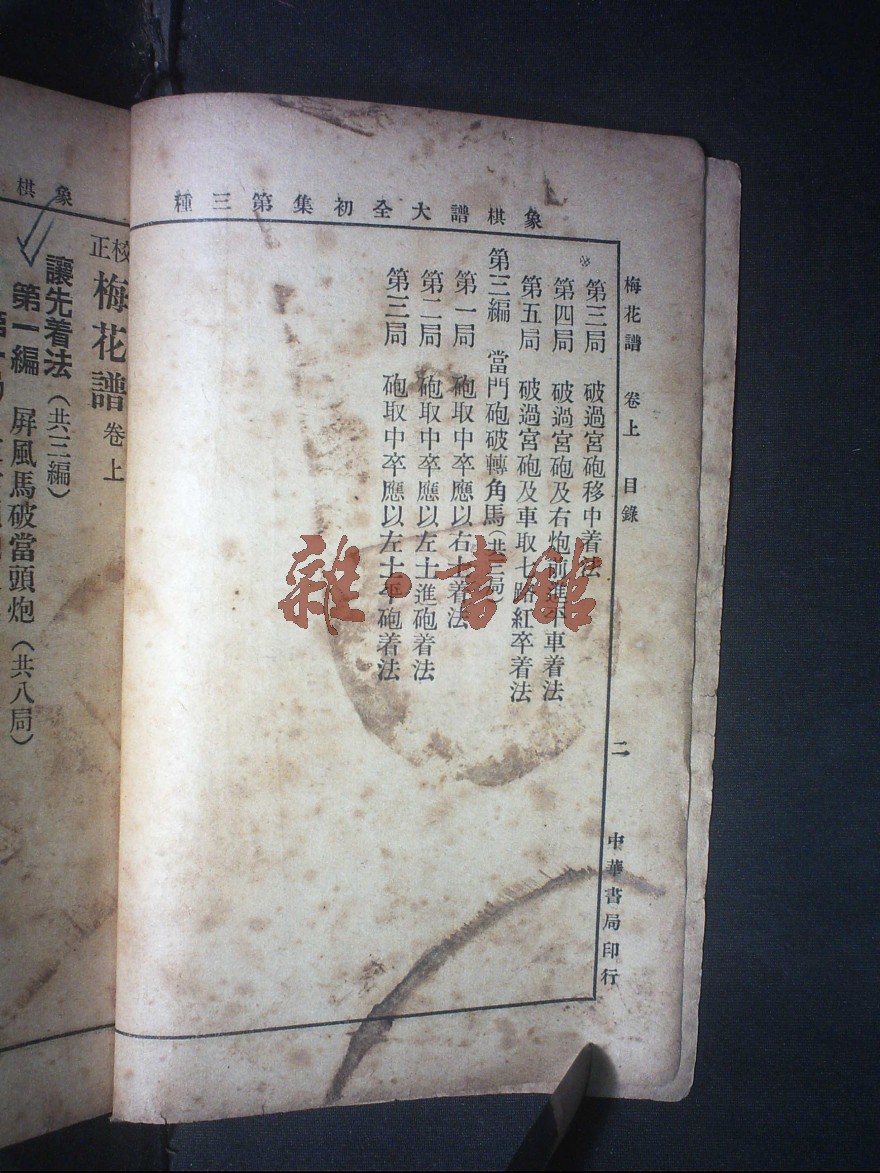 象棋譜大全初集第三種
梅花譜 卷上 目錄 二 中華書局印行
第三局 破過宮砲移中着法
第四局 破過宮砲及右炮前進平車着法
第五局 破過宮砲及車取七路紅卒着法
第三編 當門砲破轉角馬（共三局）
第一局 砲取中卒應以右士着法
第二局 砲取中卒應以左士進砲着法
第三局 砲取中卒應以左士平砲着法
象棋
校正梅花譜卷上
讓先着法（共三編）
第一編 屏風馬破當頭炮（共八局）
雜·書館